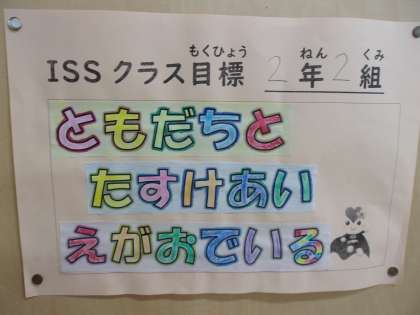 もくひょう ねん くみ
ISS クラス目標 2年2組
ともだちと
たすけあい
えがおでいる